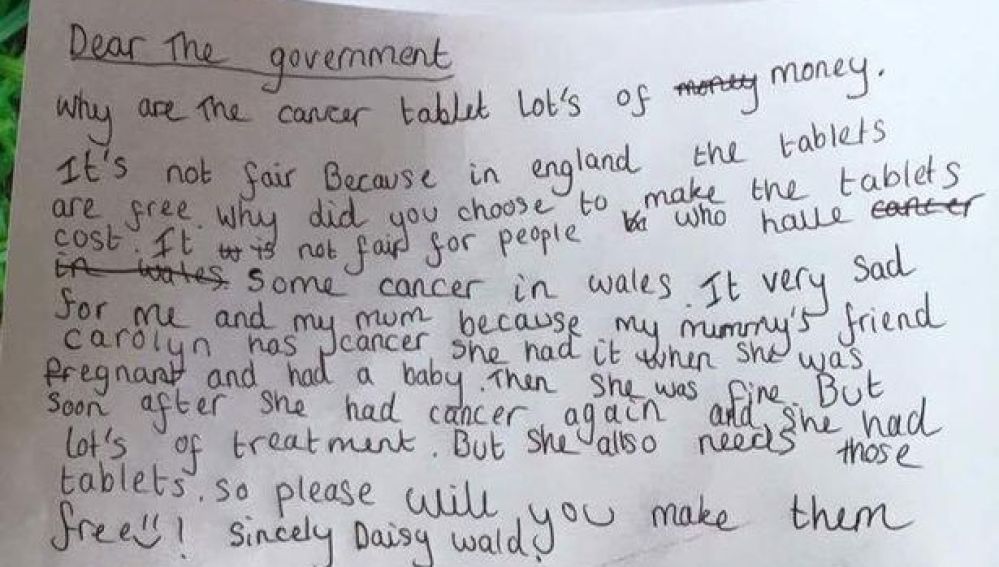 Dear The government
Why are The cancer tablet Lot's of money money.
It's not fair Because in england the tablets
are free. Why did you choose to make the tablets
cost. It is not fair for people who have cancer
in wales. Some cancer in wales. It very sad
for me and my mum because my mummy's friend
carolyn has cancer she had it when she was
Pregnant and had a baby. Then she was fine. But
soon after she had cancer again and she had
lot's of treatment. But she also needs those
tablets. so please will you make them
free!! ! Sincely Daisy wald